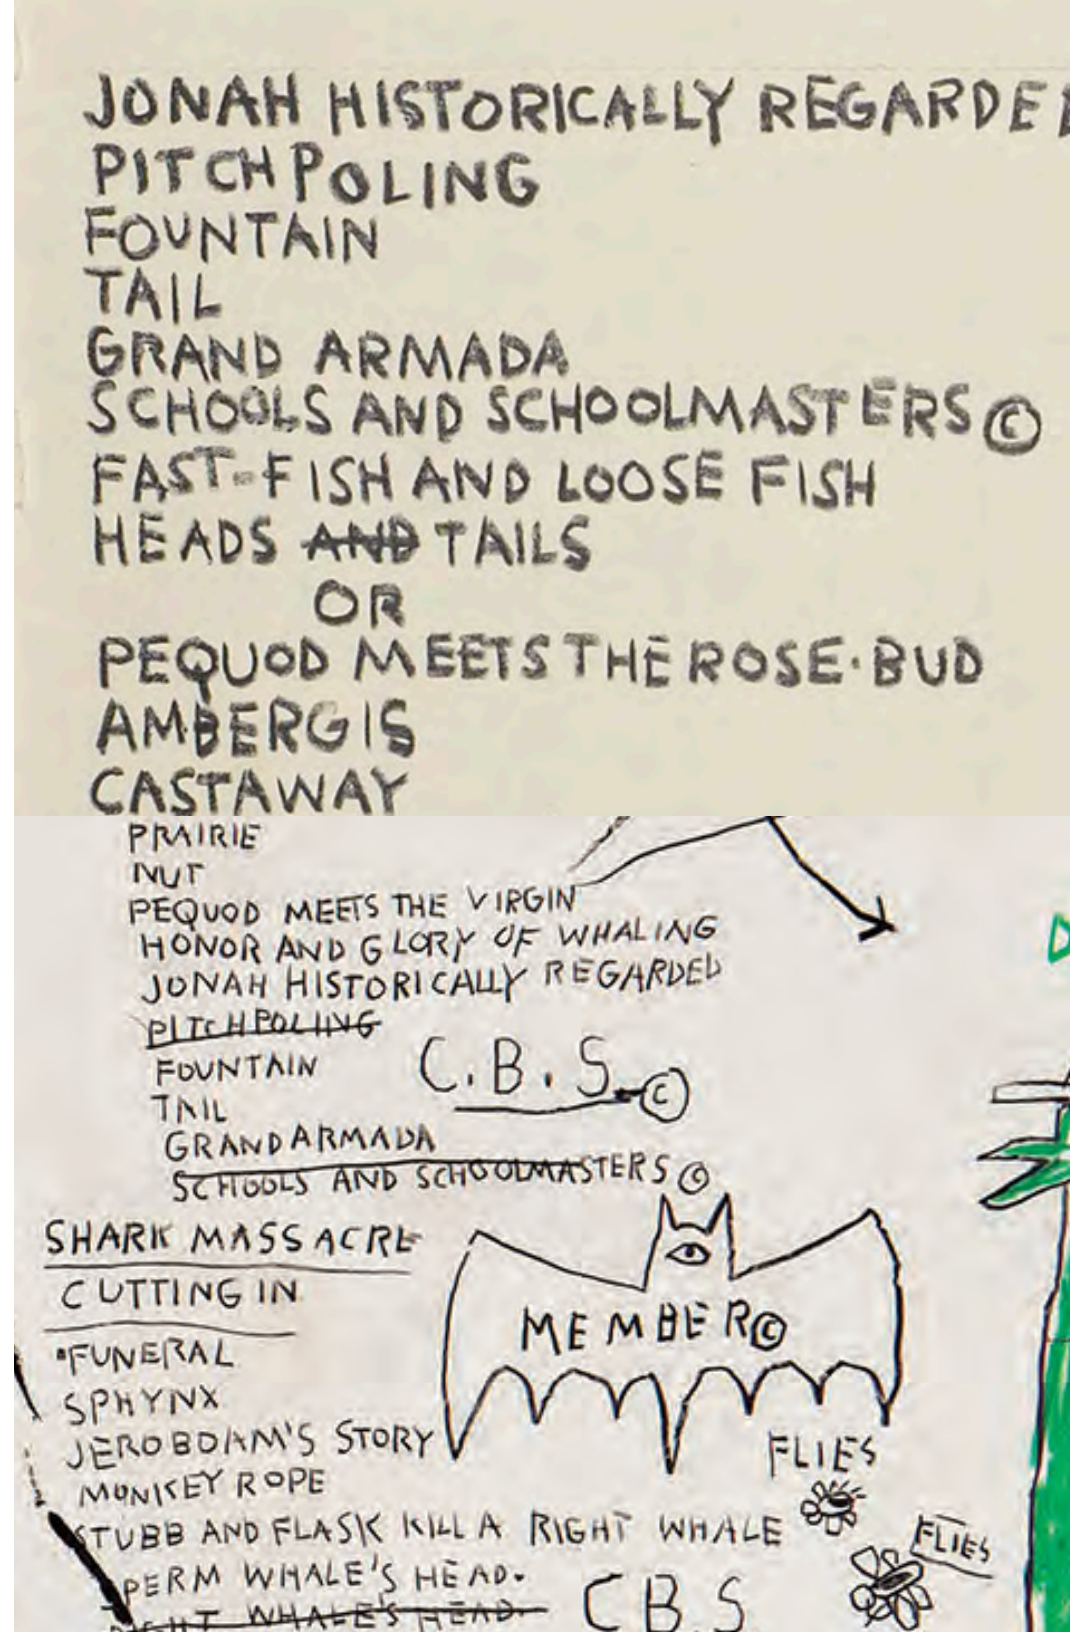 JONAH HISTORICALLY REGARDED
PITCHPOLING
FOUNTAIN
TAIL
GRAND ARMADA
SCHOOLS AND SCHOOLMASTERS ©
FAST-FISH AND LOOSE FISH
HEADS AND TAILS
OR
PEQUOD MEETS THE ROSE·BUD
AMBERGIS
CASTAWAY
PRAIRIE
NUT
PEQUOD MEETS THE VIRGIN
HONOR AND GLORY OF WHALING
JONAH HISTORICALLY REGARDED
PITCHPOLING
FOUNTAIN
C.B.S. ©
TAIL
GRAND ARMADA
SCHOOLS AND SCHOOLMASTERS ©
SHARK MASSACRE
CUTTING IN
MEMBER©
FUNERAL
SPHYNX
JEROBOAM'S STORY
FLIES
MONKEY ROPE
STUBB AND FLASK KILL A RIGHT WHALE
FLIES
PERM WHALE'S HEAD.
C.B.S
GHT WHALE'S HEAD.
D